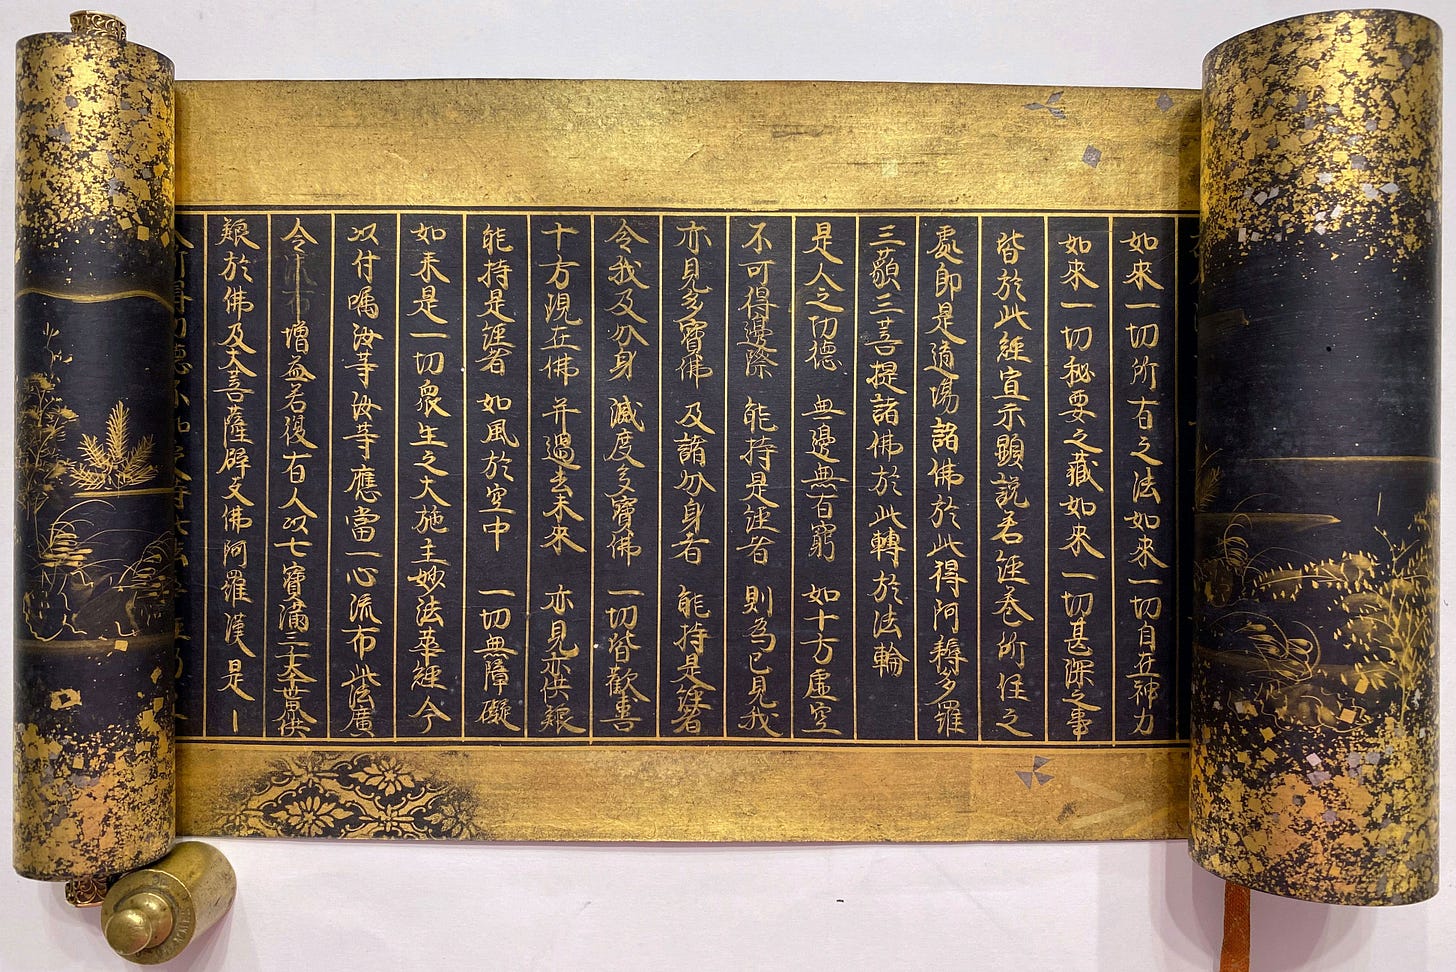 如來一切所有之法如來一切自在神力
如來一切秘要之藏如來一切甚深之事
皆於此經宣示顯說若經巻所住之
處即是道場諸佛於此得阿耨多羅
三藐三菩提諸佛於此轉於法輪
是人之功德 無邊無有窮 如十方虛空
不可得邊際 能持是經者 則為已見我
亦見多寶佛 及諸分身者 能持是經者
令我及分身 滅度多寶佛 一切皆歡喜
十方現在佛 并過去未來 亦見亦供養
能持是經者 如風於空中 一切無障礙
如来是一切衆生之大施主妙法華經今
以付囑汝等汝等應當一心流布此法廣
令流布增益若復有人以七寶滿三千大千世界供
養於佛及大菩薩辟支佛阿羅漢是